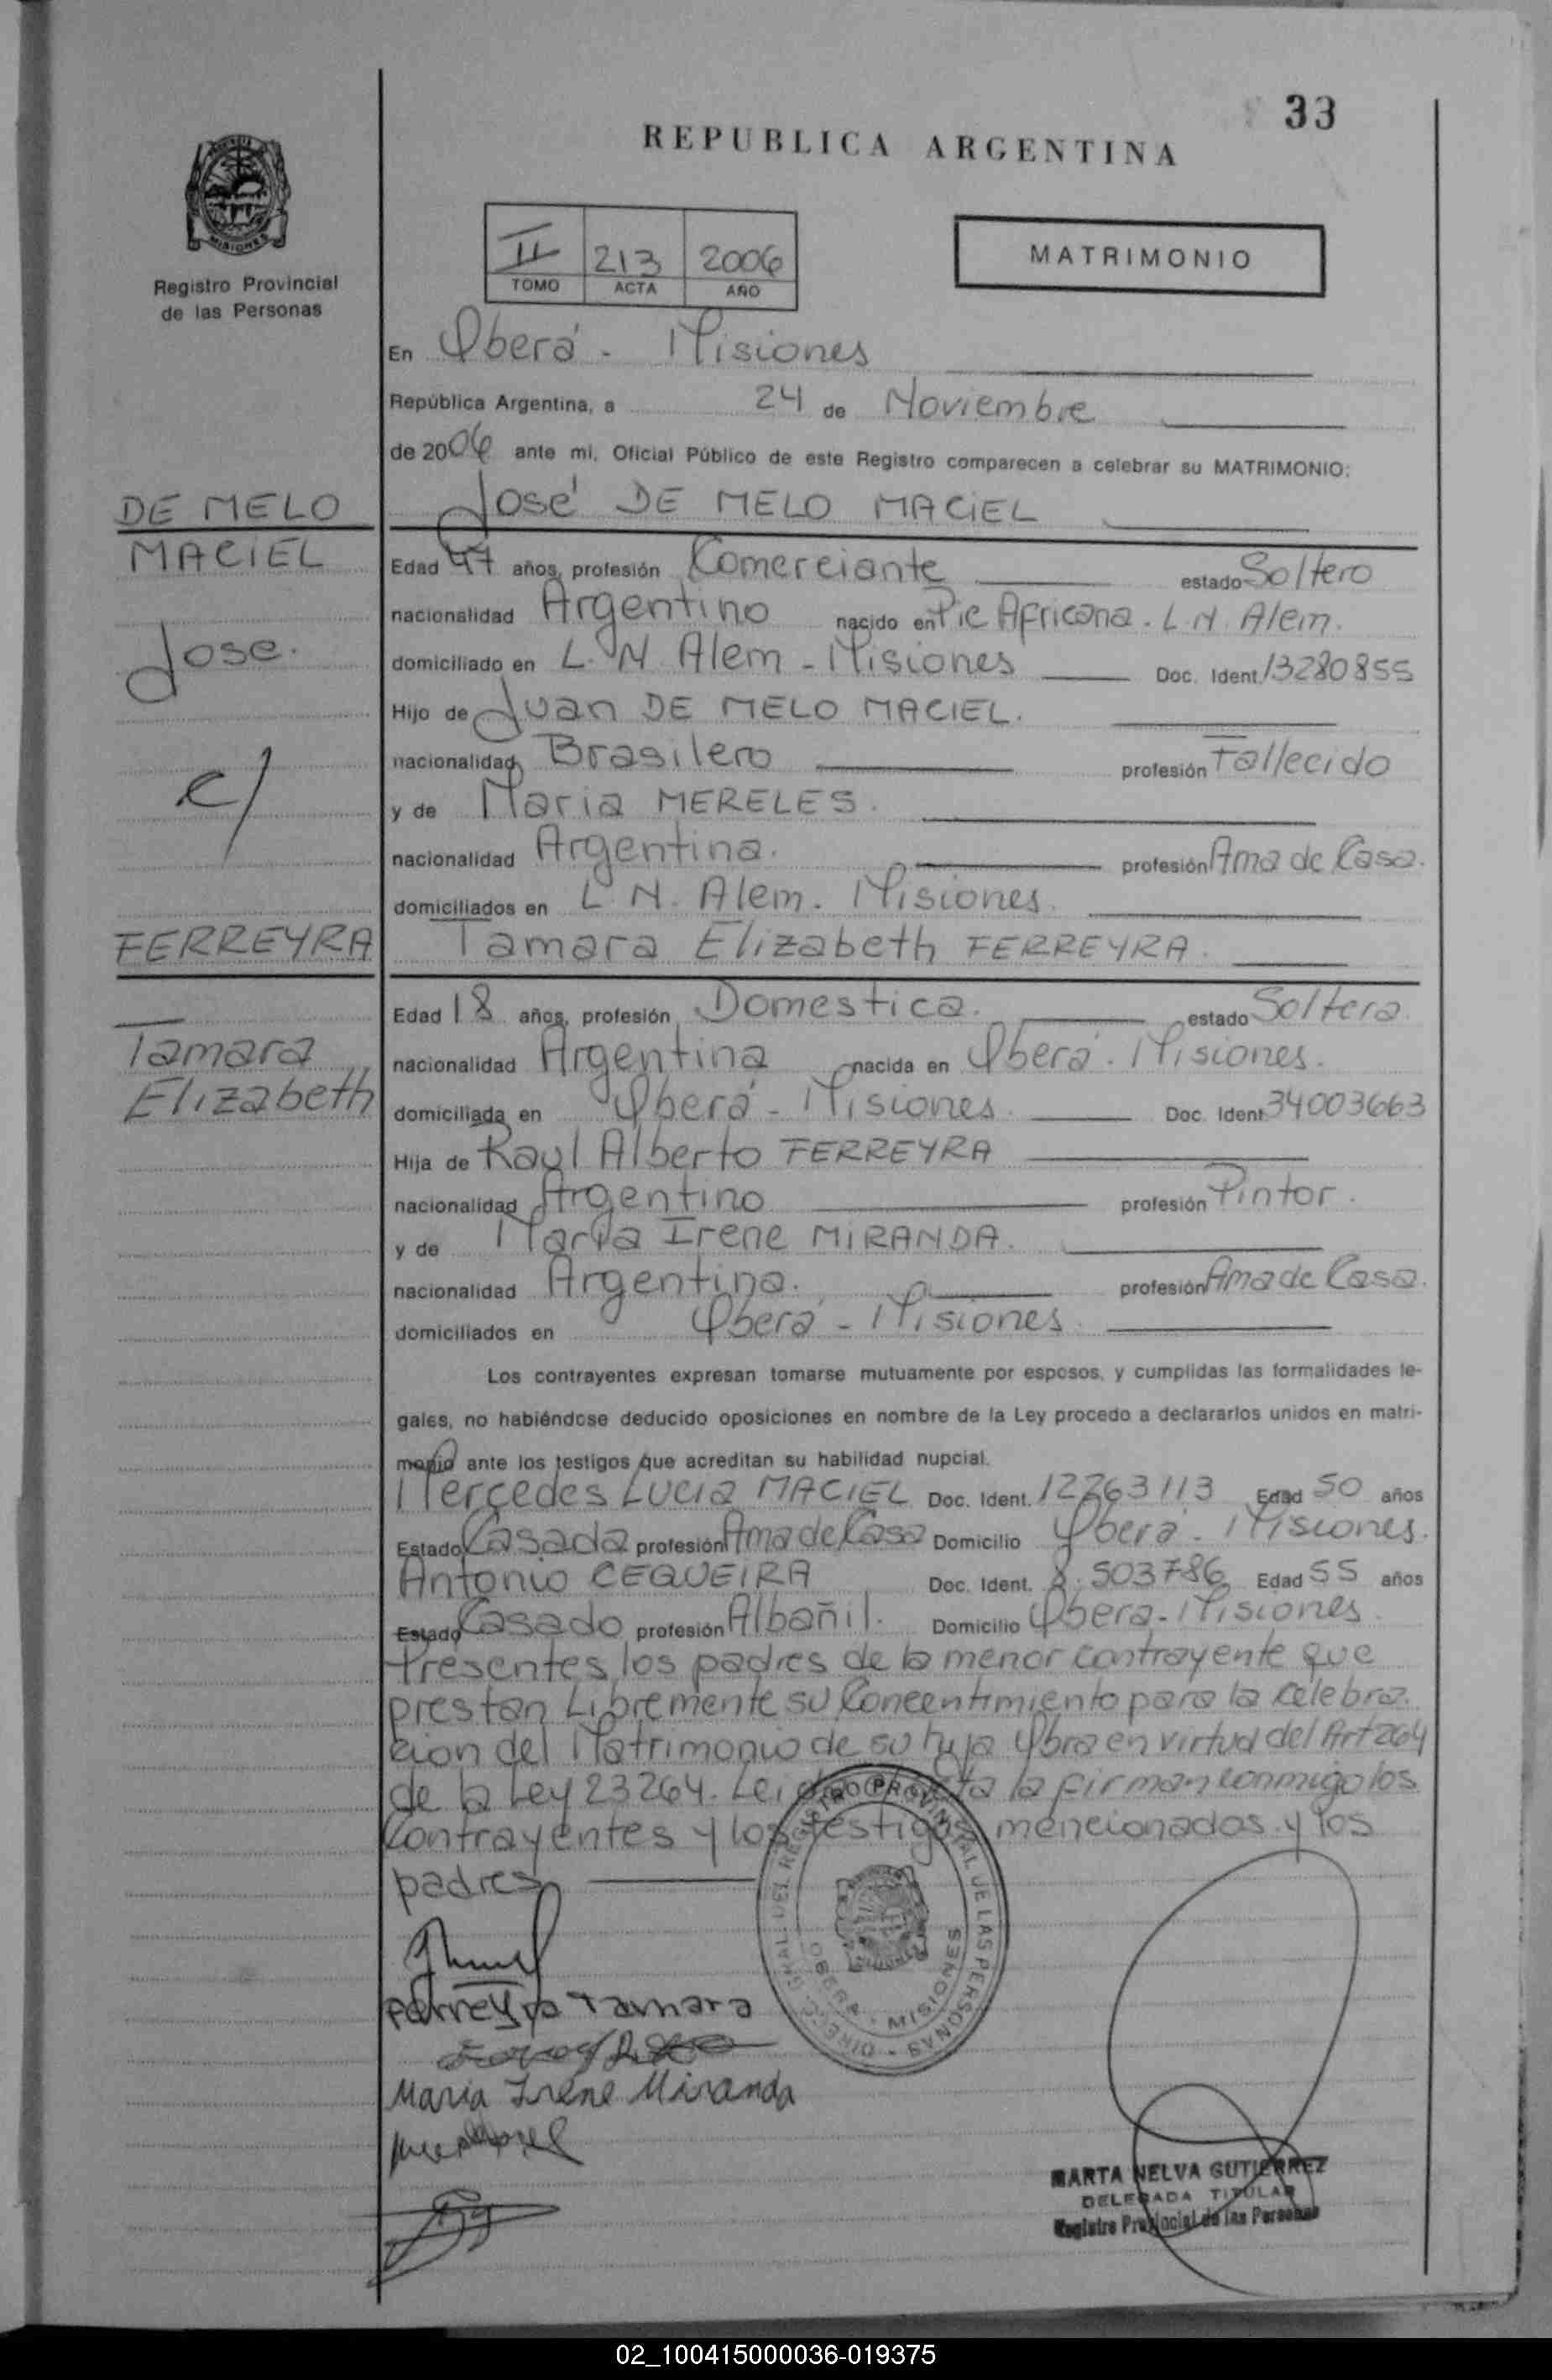 33
REPUBLICA ARGENTINA
MISIONES
Registro Provincial
de las Personas
II 213 2006
TOMO ACTA AÑO
MATRIMONIO
En Oberá - Misiones
República Argentina, a 24 de Noviembre
de 2006 ante mi, Oficial Público de este Registro comparecen a celebrar su MATRIMONIO:
DE MELO
José DE MELO MACIEL
MACIEL
Edad 47 años, profesión Comerciante estado Soltero
nacionalidad Argentino nacido en Pic Africana. L.N. Alem.
Jose.
domiciliado en L. N Alem - Misiones Doc. Ident. 13280855
Hijo de Juan DE MELO MACIEL.
nacionalidad Brasilero profesión Fallecido
c/
y de Maria MERELES.
nacionalidad Argentina. profesión Ama de Casa.
domiciliados en L N. Alem. Misiones
FERREYRA
Tamara Elizabeth FERREYRA.
Edad 18 años, profesión Domestica. estado Soltera
Tamara
nacionalidad Argentina nacida en Oberá. Misiones.
Elizabeth
domiciliada en Oberá - Misiones Doc. Ident. 34003663
Hija de Raul Alberto FERREYRA
nacionalidad Argentino profesión Pintor.
y de Maria Irene MIRANDA.
nacionalidad Argentina. profesión Ama de Casa.
domiciliados en Oberá - Misiones
Los contrayentes expresan tomarse mutuamente por esposos, y cumplidas las formalidades le-
gales, no habiéndose deducido oposiciones en nombre de la Ley procedo a declararlos unidos en matri-
monio ante los testigos que acreditan su habilidad nupcial.
Mercedes Lucia MACIEL Doc. Ident. 12263113 Edad 50 años
Estado Casada profesión Ama de Casa Domicilio Oberá - Misiones.
Antonio CEQUEIRA Doc. Ident. 8.503786 Edad 55 años
Estado Casado profesión Albañil. Domicilio Oberá - Misiones
Presentes los padres de la menor contrayente que
prestan Libremente su Concentimiento para la Celebra.
cion del Matrimonio de su hija Obra en virtud del Art 264
de la Ley 23264. Leida el acta la firman conmigo los
Contrayentes y los testigos mencionados y los
padres
DIRECC. GRAL. DEL REGISTRO PROVINCIAL DE LAS PERSONAS
OBERA - MISIONES
Ferreyra Tamara
Maria Irene Miranda
MARTA NELVA GUTIERREZ
DELEGADA TITULAR
Registro Provincial de las Personas
02_100415000036-019375